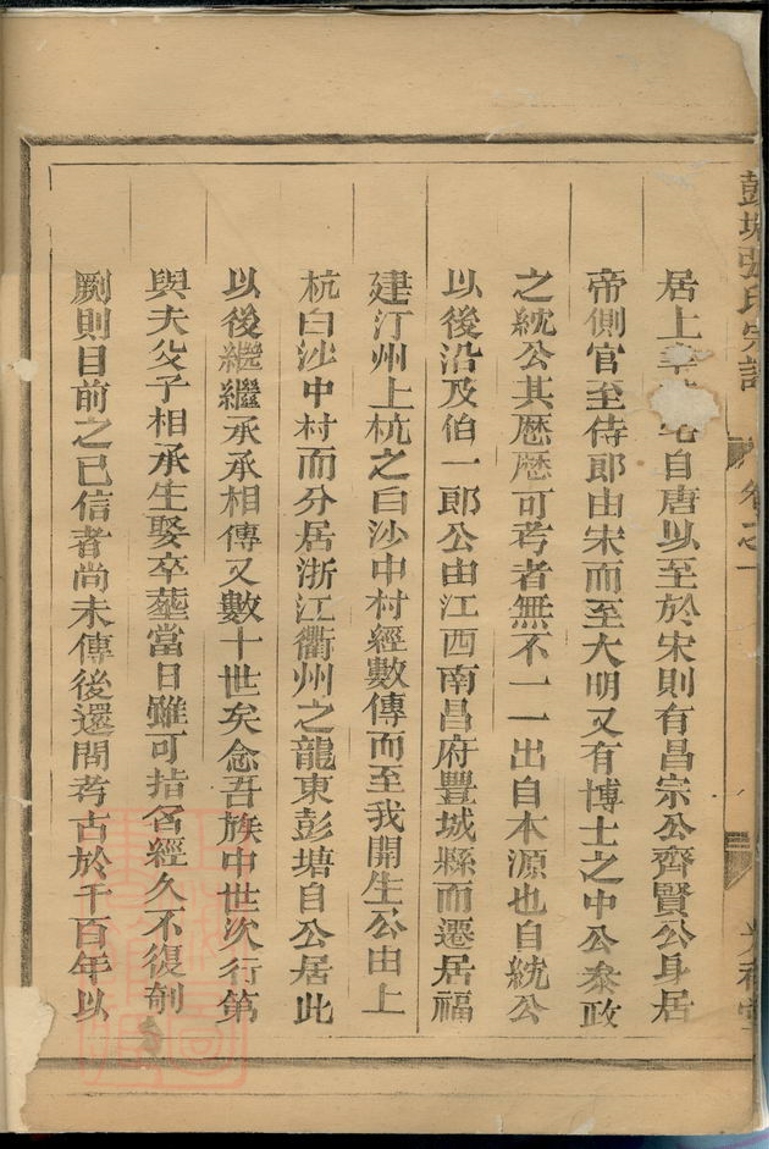 彭塘張氏宗譜 卷之一
居上 宅自唐以至於宋則有昌宗公齊賢公身居
帝側官至侍郎由宋而至大明又有博士之中公泰政
之統公其歷歷可考者無不一一出自本源也自統公
以後沿及伯一郎公由江西南昌府豐城縣而遷居福
建汀州上杭之白沙中村經數傳而至我開生公由上
杭白沙中村而分居浙江衢州之龍東彭塘自公居此
以後繼繼承承相傳又數十世矣念吾族中世次行第
與夫父子相承生娶卒葬當日雖可指名經久不復剞
劂則目前之已信者尚未傳後還問考古於千百年以